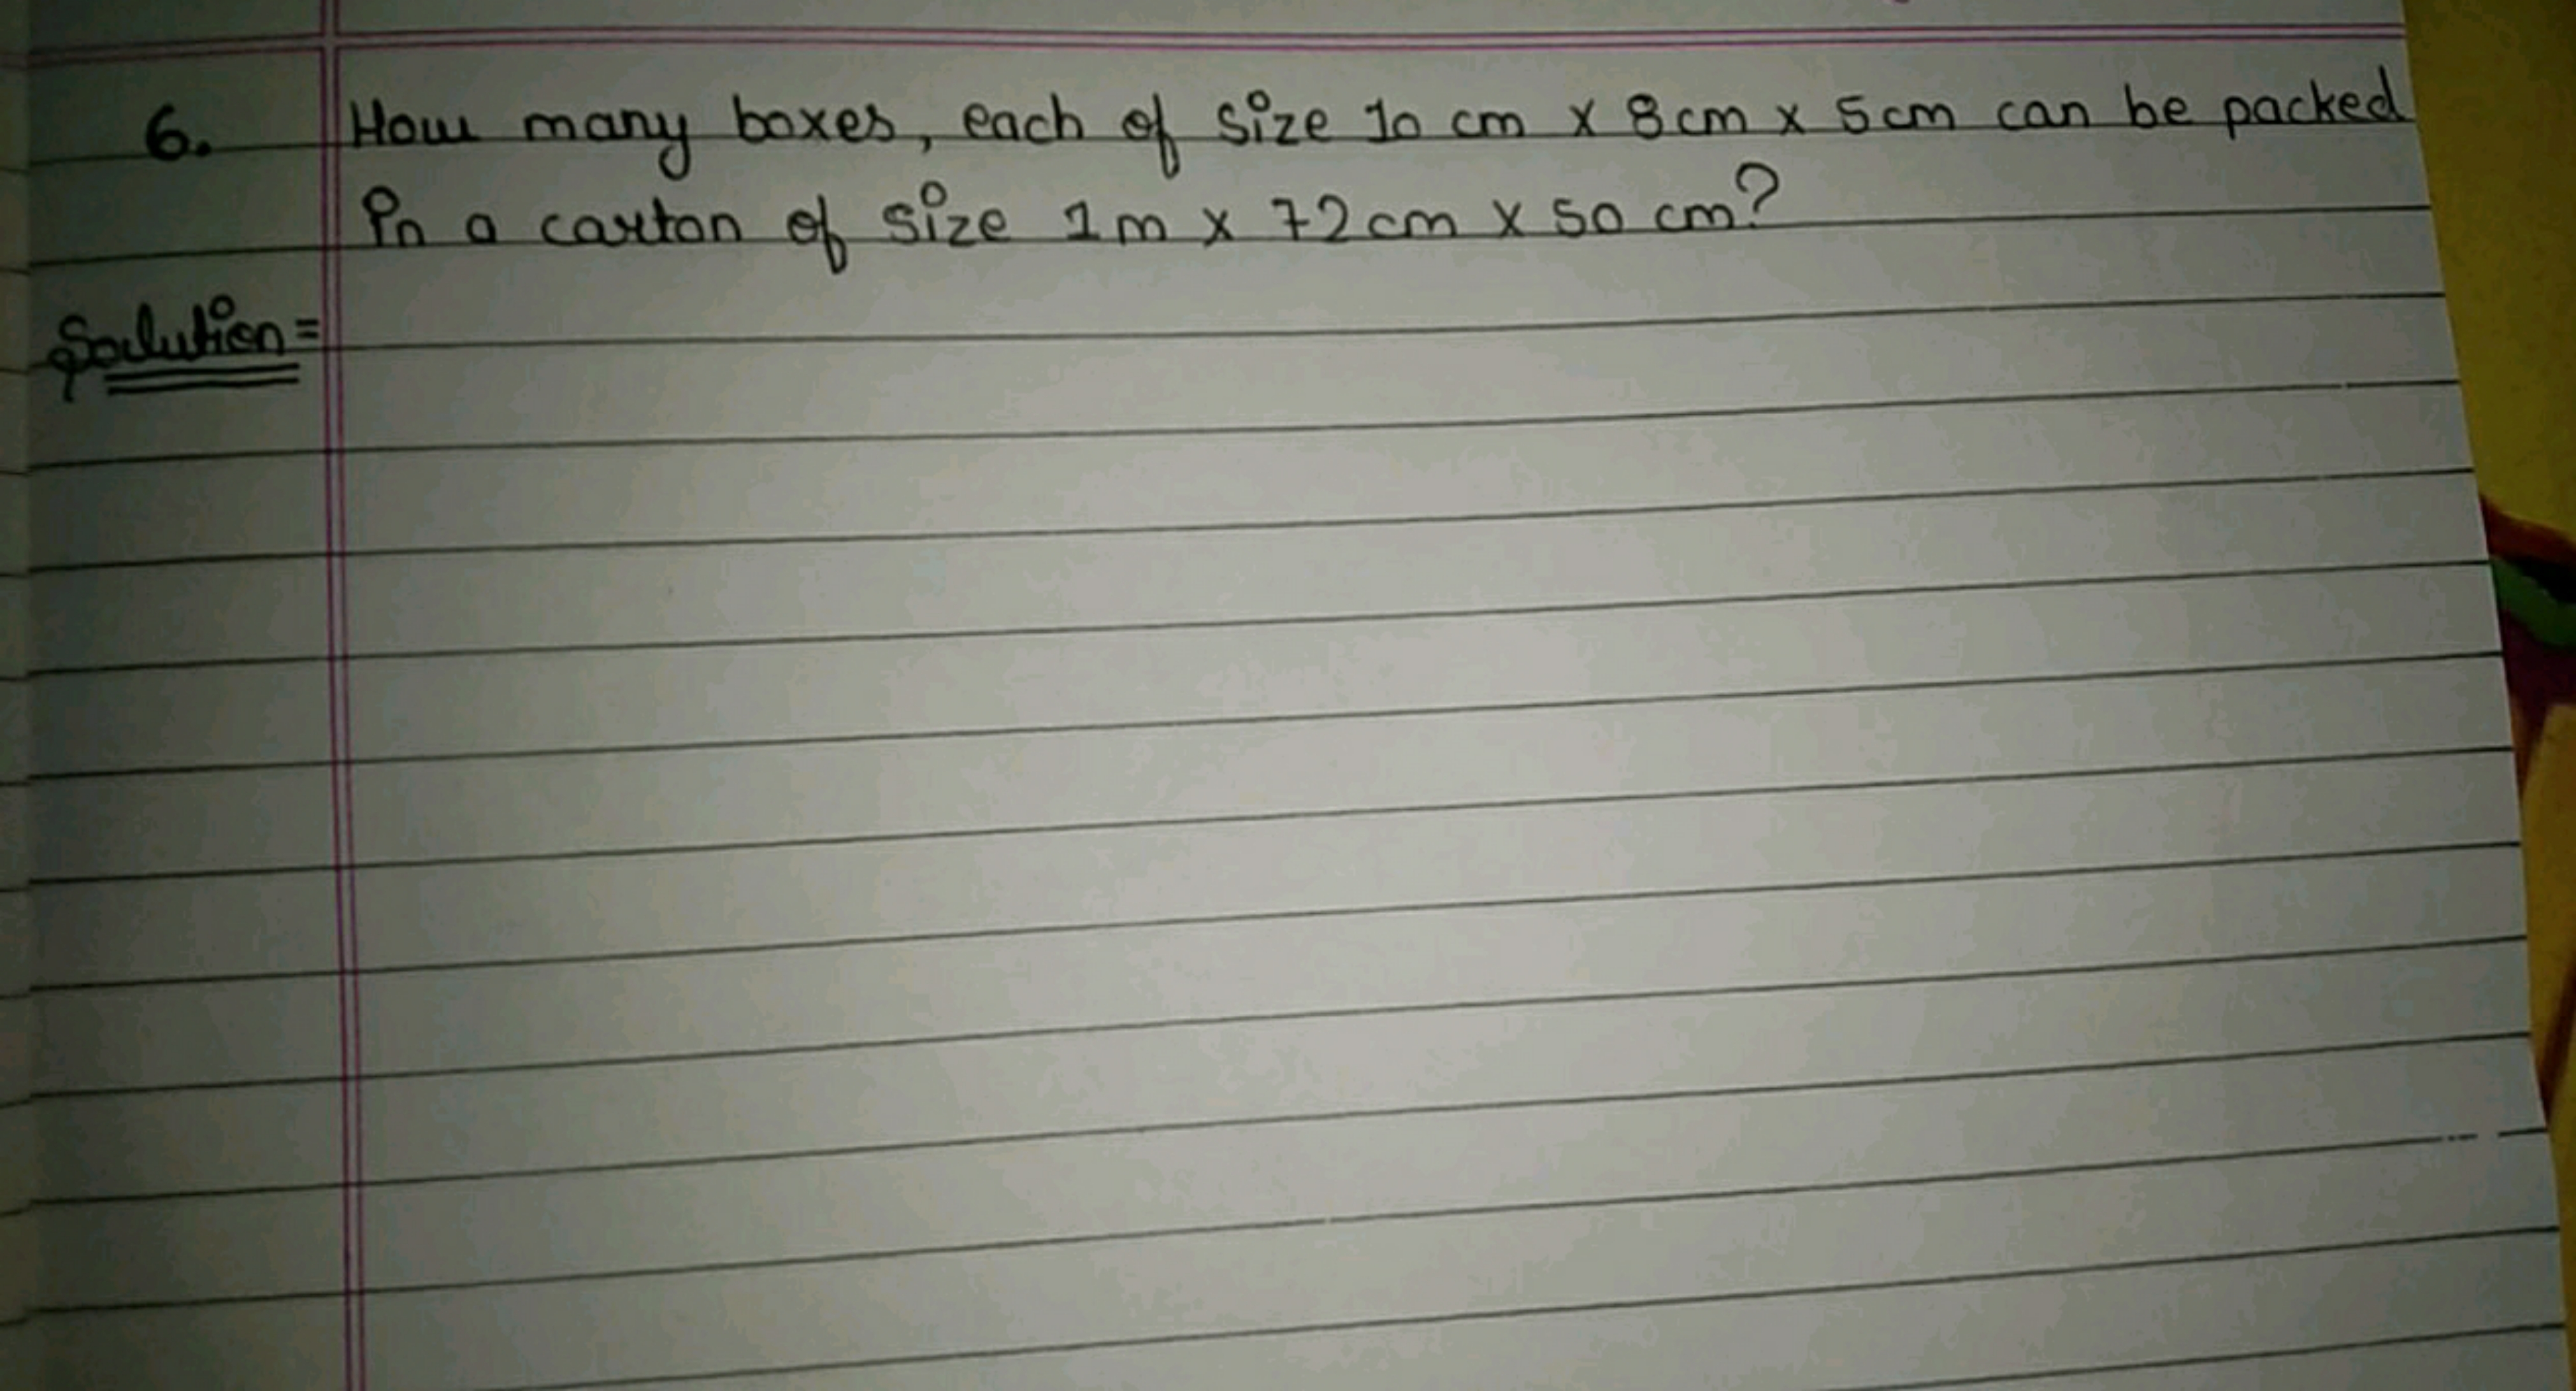 6. How many boxes, each of size 10 cm x 8cm x 5cm can be packed
in a carton of size 1m x 72cm x 50 cm?
Solution=